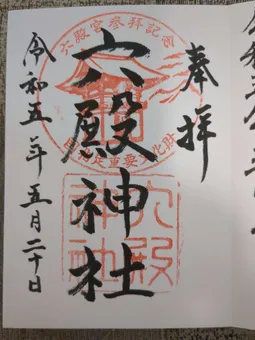 奉拝
六殿神社
令和五年五月二十日
六殿宮参拝記念
国指定重要文化財
六殿
神社